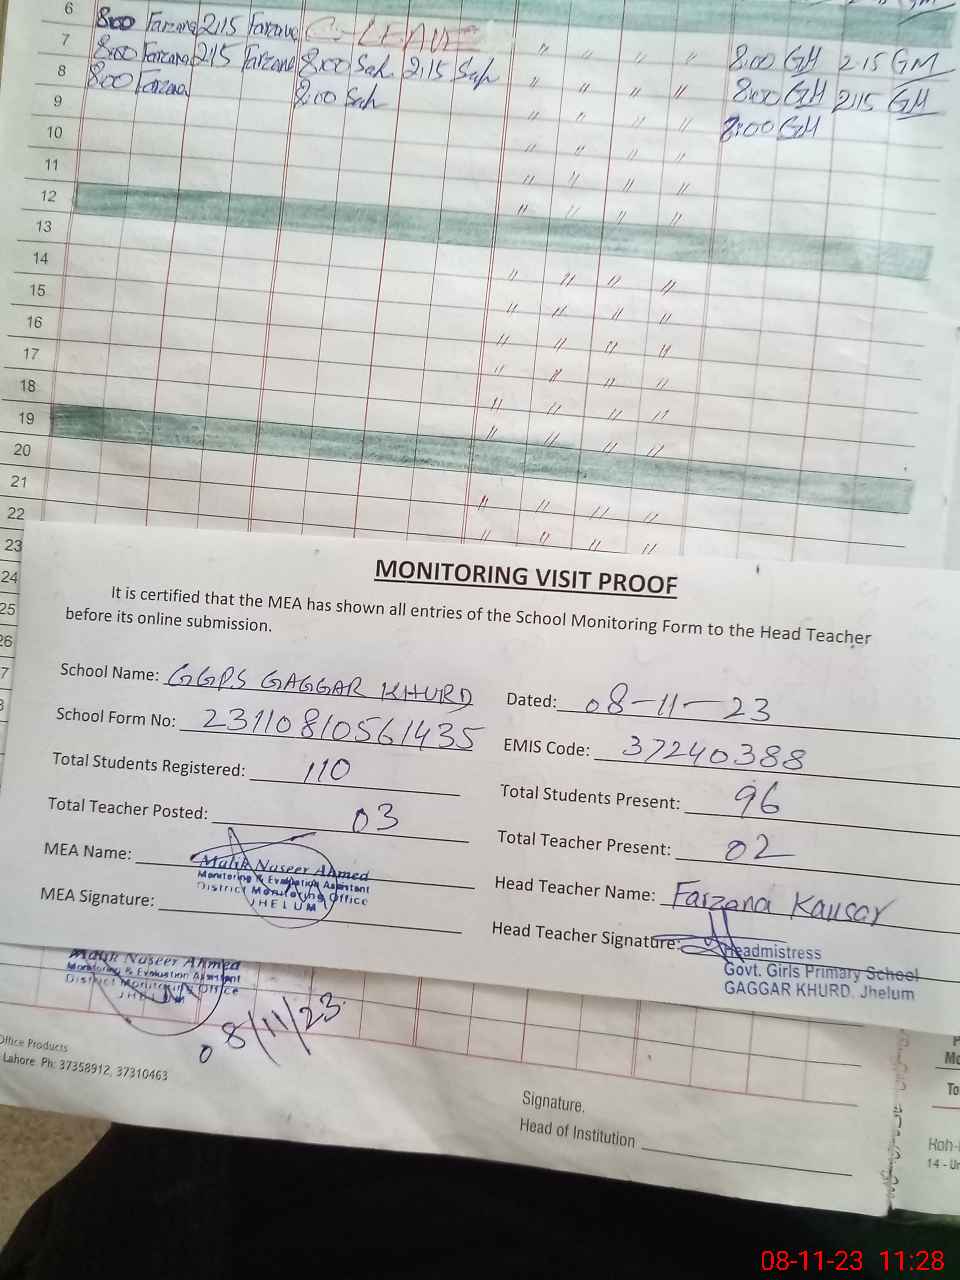 6 8:00 Farzana 2:15 Farzana C-LEAVE
7 8:00 Farzana 2:15 Farzana 8:00 Sah 2:15 Sah " " " " 8:00 GH 2:15 GM
8 8:00 Farzana 8:00 Sah " " " " 8:00 GH 2:15 GH
9 " " " " 8:00 GH
10 " " " "
11 " " " "
12 " " " "
13
14 " " " "
15 " " " "
16 " " " "
17 " " " "
18 " " " "
19 " " " "
20
21 " " " "
22 " " " "
23
24
25
26
MONITORING VISIT PROOF
It is certified that the MEA has shown all entries of the School Monitoring Form to the Head Teacher
before its online submission.
School Name: GGPS GAGGAR KHURD Dated: 08-11-23
School Form No: 23110810561435 EMIS Code: 37240388
Total Students Registered: 110 Total Students Present: 96
Total Teacher Posted: 03 Total Teacher Present: 02
MEA Name: Head Teacher Name: Farzana Kausar
Malik Naseer Ahmed
Monitoring & Evaluation Assistant
District Monitoring Office
JHELUM
MEA Signature: Head Teacher Signature:
Headmistress
Govt. Girls Primary School
GAGGAR KHURD. Jhelum
Malik Naseer Ahmed
Monitoring & Evaluation Assistant
District Monitoring Office
JHELUM
08/11/23
Office Products
Lahore Ph: 37358912, 37310463
Signature.
Head of Institution
To
14 - Ur
08-11-23 11:28